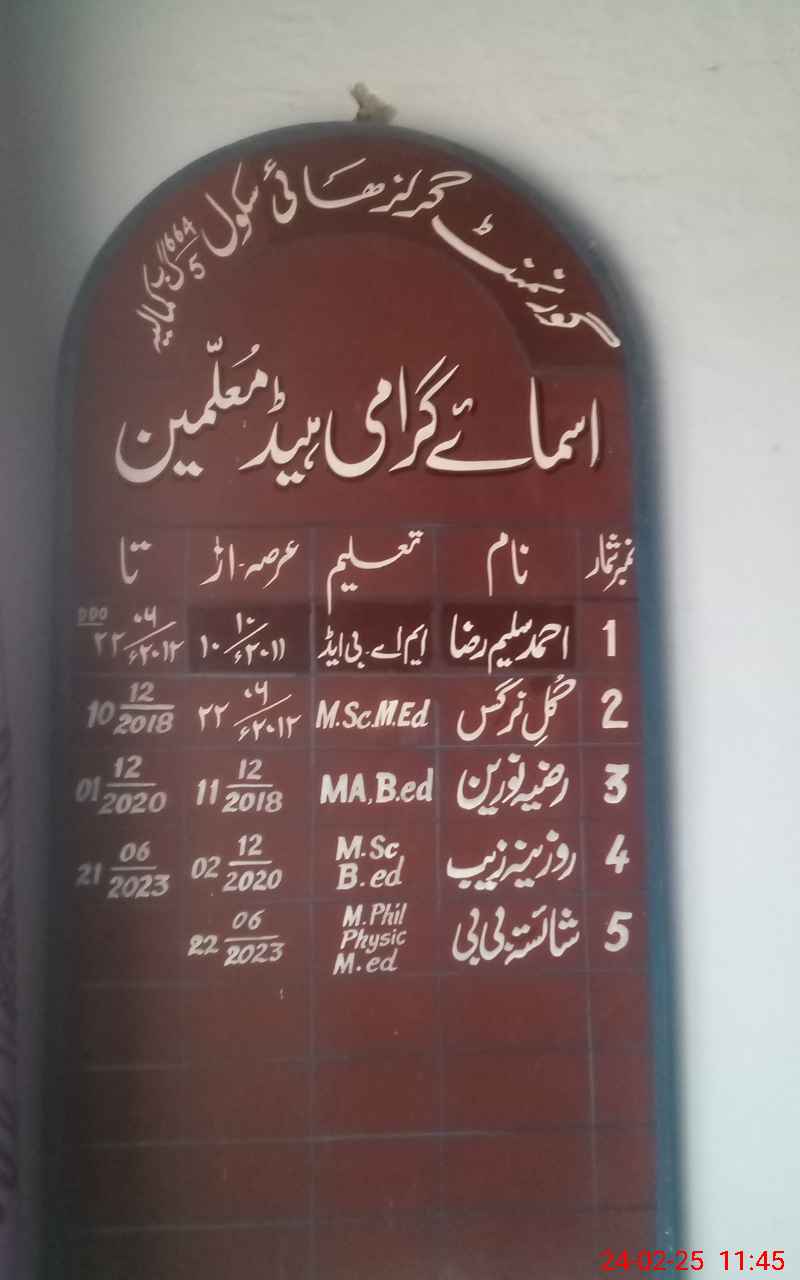 گورنمنٹ گرلز ھائی سکول 664/5 گ ب کمالیہ
اسمائے گرامی ہیڈ معلّمین
نمبر شمار نام تعلیم عرصہ۔از تا
1 احمد سلیم رضا ایم اے۔بی ایڈ ۱۰ ۱۰/۲۰۱۱ء DDO ۲۲ ۰۶/۲۰۱۲ء
2 گُلِ نرگس M.Sc.M.Ed ۲۲ ۰۶/۲۰۱۲ء 10 12/2018
3 رضیہ نورین MA,B.ed 11 12/2018 01 12/2020
4 روزینہ زیب M.Sc B.ed 02 12/2020 21 06/2023
5 شائستہ بی بی M.Phil Physic M.ed 22 06/2023
24-02-25 11:45